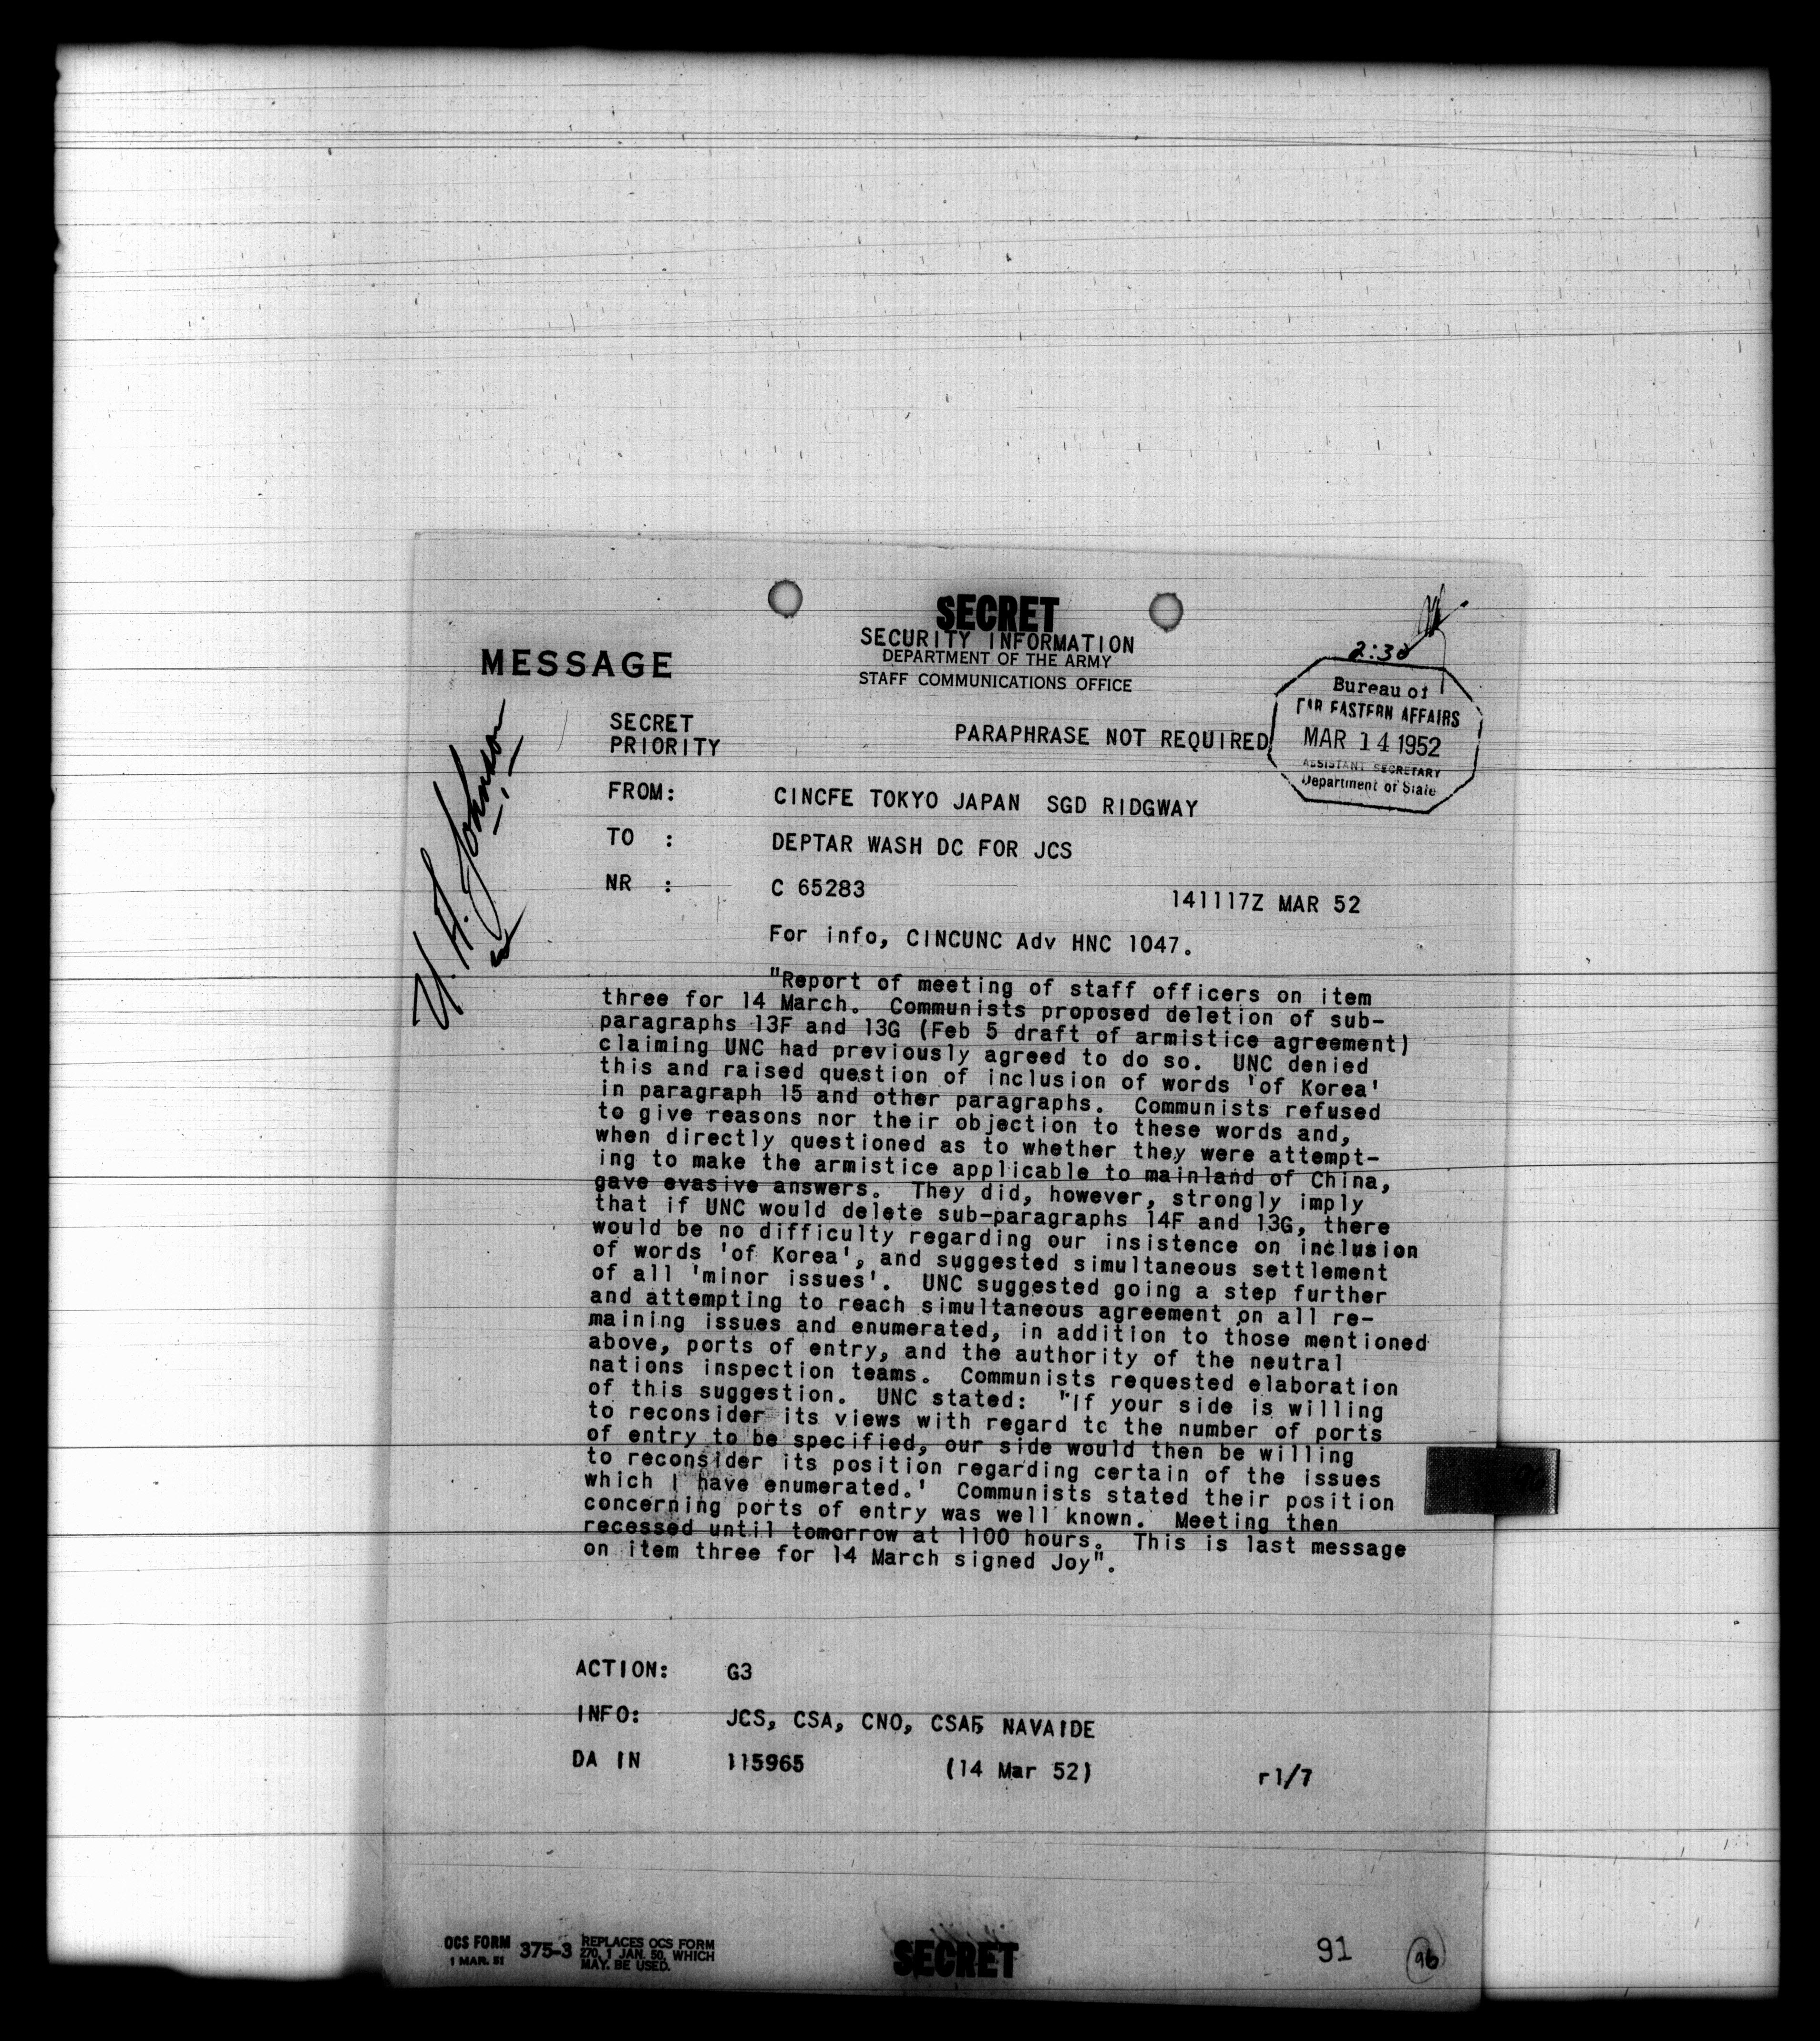 SECRET
SECURITY INFORMATION
DEPARTMENT OF THE ARMY
STAFF COMMUNICATIONS OFFICE
MESSAGE
2:30
Bureau of
FAR EASTERN AFFAIRS
MAR 14 1952
ASSISTANT SECRETARY
Department of State
U. A. Johnson
SECRET
PRIORITY
PARAPHRASE NOT REQUIRED
FROM: CINCFE TOKYO JAPAN SGD RIDGWAY
TO : DEPTAR WASH DC FOR JCS
NR : C 65283 141117Z MAR 52
For info, CINCUNC Adv HNC 1047.
"Report of meeting of staff officers on item
three for 14 March. Communists proposed deletion of sub-
paragraphs 13F and 13G (Feb 5 draft of armistice agreement)
claiming UNC had previously agreed to do so. UNC denied
this and raised question of inclusion of words 'of Korea'
in paragraph 15 and other paragraphs. Communists refused
to give reasons nor their objection to these words and,
when directly questioned as to whether they were attempt-
ing to make the armistice applicable to mainland of China,
gave evasive answers. They did, however, strongly imply
that if UNC would delete sub-paragraphs 14F and 13G, there
would be no difficulty regarding our insistence on inclusion
of words 'of Korea', and suggested simultaneous settlement
of all 'minor issues'. UNC suggested going a step further
and attempting to reach simultaneous agreement on all re-
maining issues and enumerated, in addition to those mentioned
above, ports of entry, and the authority of the neutral
nations inspection teams. Communists requested elaboration
of this suggestion. UNC stated: "If your side is willing
to reconsider its views with regard to the number of ports
of entry to be specified, our side would then be willing
to reconsider its position regarding certain of the issues
which I have enumerated.' Communists stated their position
concerning ports of entry was well known. Meeting then
recessed until tomorrow at 1100 hours. This is last message
on item three for 14 March signed Joy".
ACTION: G3
INFO: JCS, CSA, CNO, CSAF NAVAIDE
DA IN 115965 (14 Mar 52) r1/7
OCS FORM
1 MAR. 51
375-3
REPLACES OCS FORM
270, 1 JAN. 50, WHICH
MAY BE USED.
SECRET
91
96